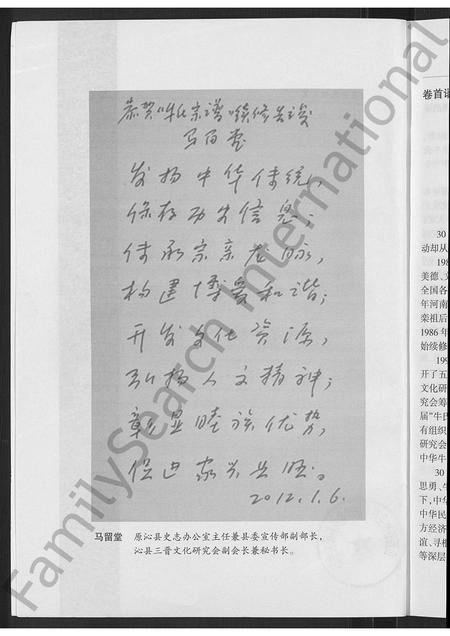 恭贺牛氏宗谱续修告竣
马留堂
发扬中华传统,
保存历史信息;
传承宗亲老脉,
构建博爱和谐;
开发文化资源,
弘扬人文精神;
彰显睦族优势,
促进家兴业旺。
2012.1.6.
马留堂 原沁县史志办公室主任兼县委宣传部副部长,
沁县三晋文化研究会副会长兼秘书长。
卷首语
30
动却从
198
美德、文
全国各
年河南
栾祖后
1986年
始续修
199
开了五
文化研
究会筹
届“牛氏
有组织
研究会
中华牛
30
思勇、牛
下,中华
中华民
方经济
谊、寻根
等深层
FamilySearch International